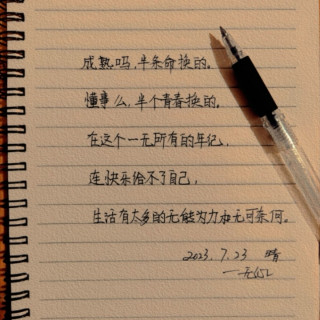 成熟吗,半条命换的。
懂事么,半个青春换的。
在这个一无所有的年纪,
连快乐给不了自己,
生活有太多的无能为力和无可奈何。
2023.7.23 晴